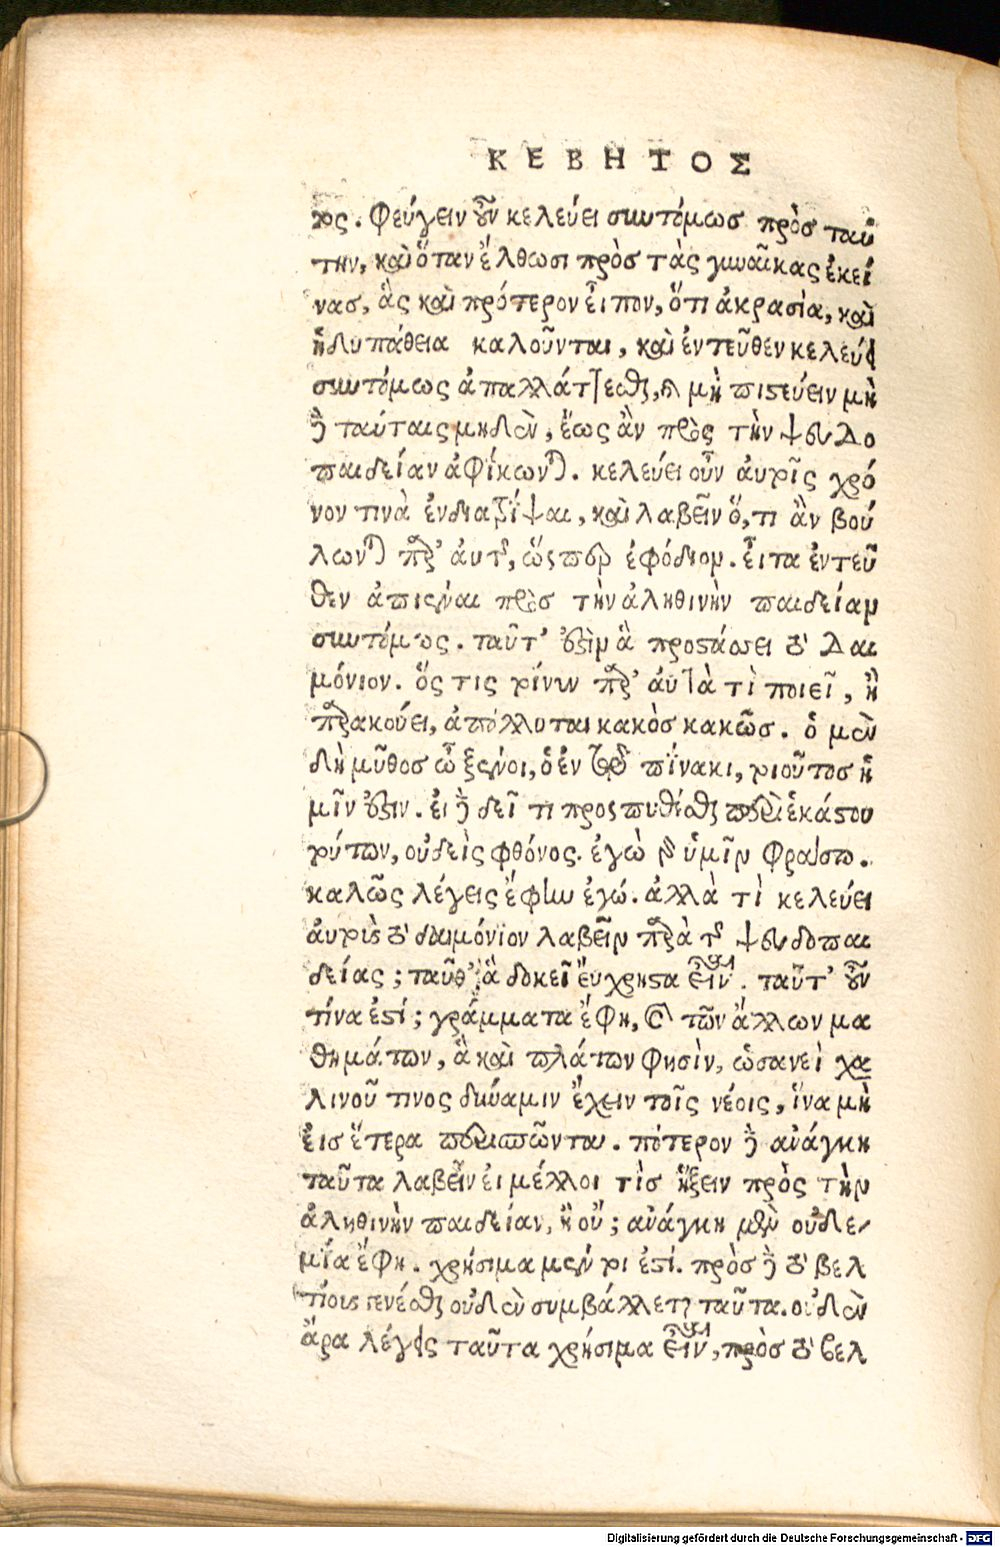 ΚΕΒΗΤΟΣ
τος. Φεύγειν οὖν κελεύει συντόμως πρὸς ταύ
την, καὶ ὅταν ἔλθωσι πρὸς τὰς γυναῖκας ἐκεί
νας, ἃς καὶ πρότερον εἶπον, ὅτι ἀκρασία, καὶ
ἡδυπάθεια καλοῦνται, καὶ ἐντεῦθεν κελεύει
συντόμως ἀπαλλάττεσθαι, καὶ μὴ πιστεύειν μὴ
δὲ ταύταις μηδὲν, ἕως ἂν πρὸς τὴν ψευδο
παιδείαν ἀφίκωνται. κελεύει οὖν ἀυτοῖς χρό
νον τινὰ ἐνδιατρίψαι, καὶ λαβεῖν ὅ,τι ἂν βού
λωνται παρ' ἀυτῆς, ὥσπερ ἐφόδιον. εἶτα ἐντεῦ
θεν ἀπιέναι πρὸς τὴν ἀληθινὴν παιδείαν
συντόμως. ταῦτ' ἐστὶν ἃ προστάσσει τὸ Δαι
μόνιον. ὅς τις τοίνυν παρ' ἀυτὰ τὶ ποιεῖ, ἢ
παρακούει, ἀπόλλυται κακὸς κακῶς. ὁ μὲν
δὴ μῦθος ὦ ξένοι, ὁ ἐν τῷ πίνακι, τοιοῦτος ἡ
μῖν ἐστιν. εἰ δὲ δεῖ τι προσπυθέσθαι περὶ ἑκάστου
τούτων, οὐδεὶς φθόνος. ἐγὼ γὰρ ὑμῖν φράσω.
καλῶς λέγεις ἔφην ἐγώ. ἀλλὰ τὶ κελεύει
ἀυτοὺς τὸ δαιμόνιον λαβεῖν παρὰ τῆς ψευδοπαι
δείας; ταῦθ' ἃ δοκεῖ ἔυχρηστα εἶναι. ταῦτ' οὖν
τίνα ἐστί; γράμματα ἔφη, καὶ τῶν ἄλλων μα
θημάτων, ἃ καὶ πλάτων φησὶν, ὡσανεὶ χα
λινοῦ τινος δύναμιν ἔχειν τοῖς νέοις, ἵνα μὴ
εἰς ἕτερα περισπῶνται. πότερον δὲ ἀνάγκη
ταῦτα λαβεῖν εἰ μέλλοι τὶς ἥξειν πρὸς τὴν
ἀληθινὴν παιδείαν, ἢ οὔ; ἀνάγκη μὲν οὐδε
μία ἔφη. χρήσιμα μέν τοι ἐστί. πρὸς δὲ τὸ βελ
τίους γενέσθαι οὐδὲν συμβάλλεται ταῦτα. οὐδὲν
ἄρα λέγεις ταῦτα χρήσιμα εἶναι, πρὸς τὸ βελ
Digitalisierung gefördert durch die Deutsche Forschungsgemeinschaft - DFG